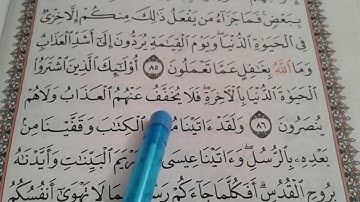 بِبَعْضٍ فَمَا جَزَآءُ مَن يَفْعَلُ ذَٰلِكَ مِنكُمْ إِلَّا خِزْىٌ
فِى الْحَيَوٰةِ الدُّنْيَا وَيَوْمَ الْقِيَٰمَةِ يُرَدُّونَ إِلَىٰٓ أَشَدِّ الْعَذَابِ
وَمَا اللَّهُ بِغَٰفِلٍ عَمَّا تَعْمَلُونَ ٨٥ أُو۟لَٰٓئِكَ الَّذِينَ اشْتَرَوُا
الْحَيَوٰةَ الدُّنْيَا بِالْآخِرَةِ فَلَا يُخَفَّفُ عَنْهُمُ الْعَذَابُ وَلَا هُمْ
يُنصَرُونَ ٨٦ وَلَقَدْ ءَاتَيْنَا الْكِتَٰبَ وَقَفَّيْنَا مِن
بَعْدِهِ بِالرُّسُلِ وَءَاتَيْنَا عِيسَى مَرْيَمَ الْبَيِّنَٰتِ وَأَيَّدْنَٰهُ
بِرُوحِ الْقُدُسِ أَفَكُلَّمَا جَآءَكُمْ بِمَا لَا تَهْوَىٰٓ أَنفُسُكُمُ